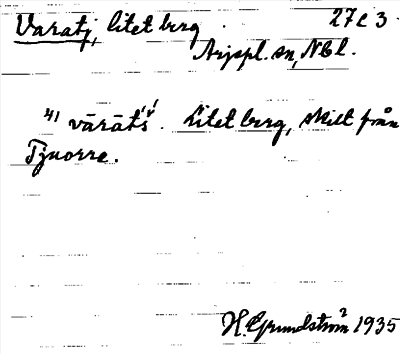 Varatj, litet berg 27c3.
Arjepl. sn, Nbl.
41 vārātš́. Litet berg, skilt från
Tjuorre.
H. Grundström 1935